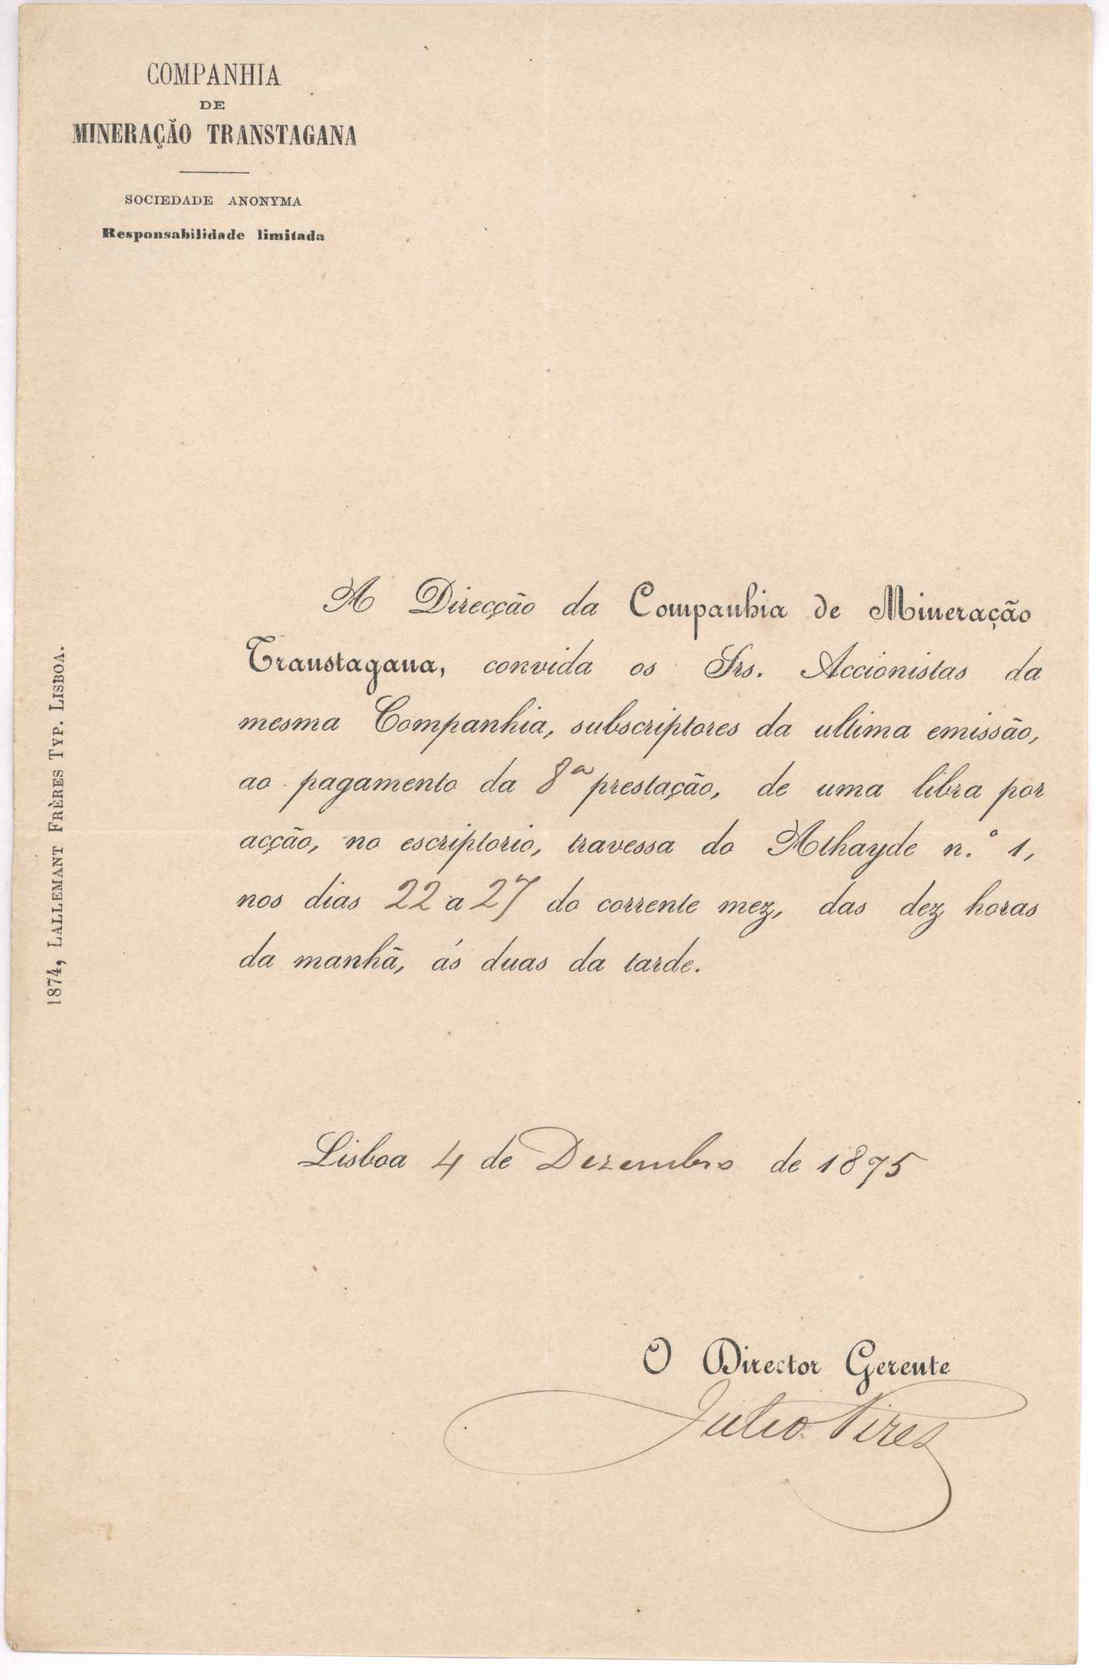 COMPANHIA
DE
MINERAÇÃO TRANSTAGANA
SOCIEDADE ANONYMA
Responsabilidade limitada
A Direcção da Companhia de Mineração
Transtagana, convida os Srs. Accionistas da
mesma Companhia, subscriptores da ultima emissão,
ao pagamento da 8ª prestação, de uma libra por
acção, no escriptorio, travessa do Athayde n.º 1,
nos dias 22 a 27 do corrente mez, das dez horas
da manhã, ás duas da tarde.
Lisboa 4 de Dezembro de 1875
O Director Gerente
Julio Pires
1874, LALLEMANT FRÈRES TYP. LISBOA.